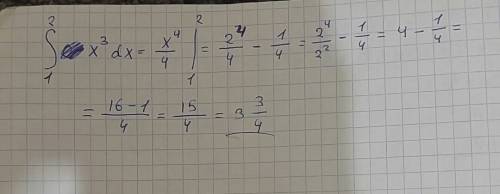 ∫₁² x³ dx = x⁴/4 |₁² = 2⁴/4 - 1/4 = 2⁴/2² - 1/4 = 4 - 1/4 =
= (16-1)/4 = 15/4 = 3 3/4